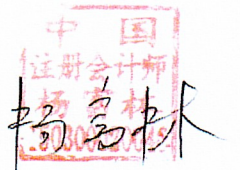 中国
注册会计师
杨高林
杨高林